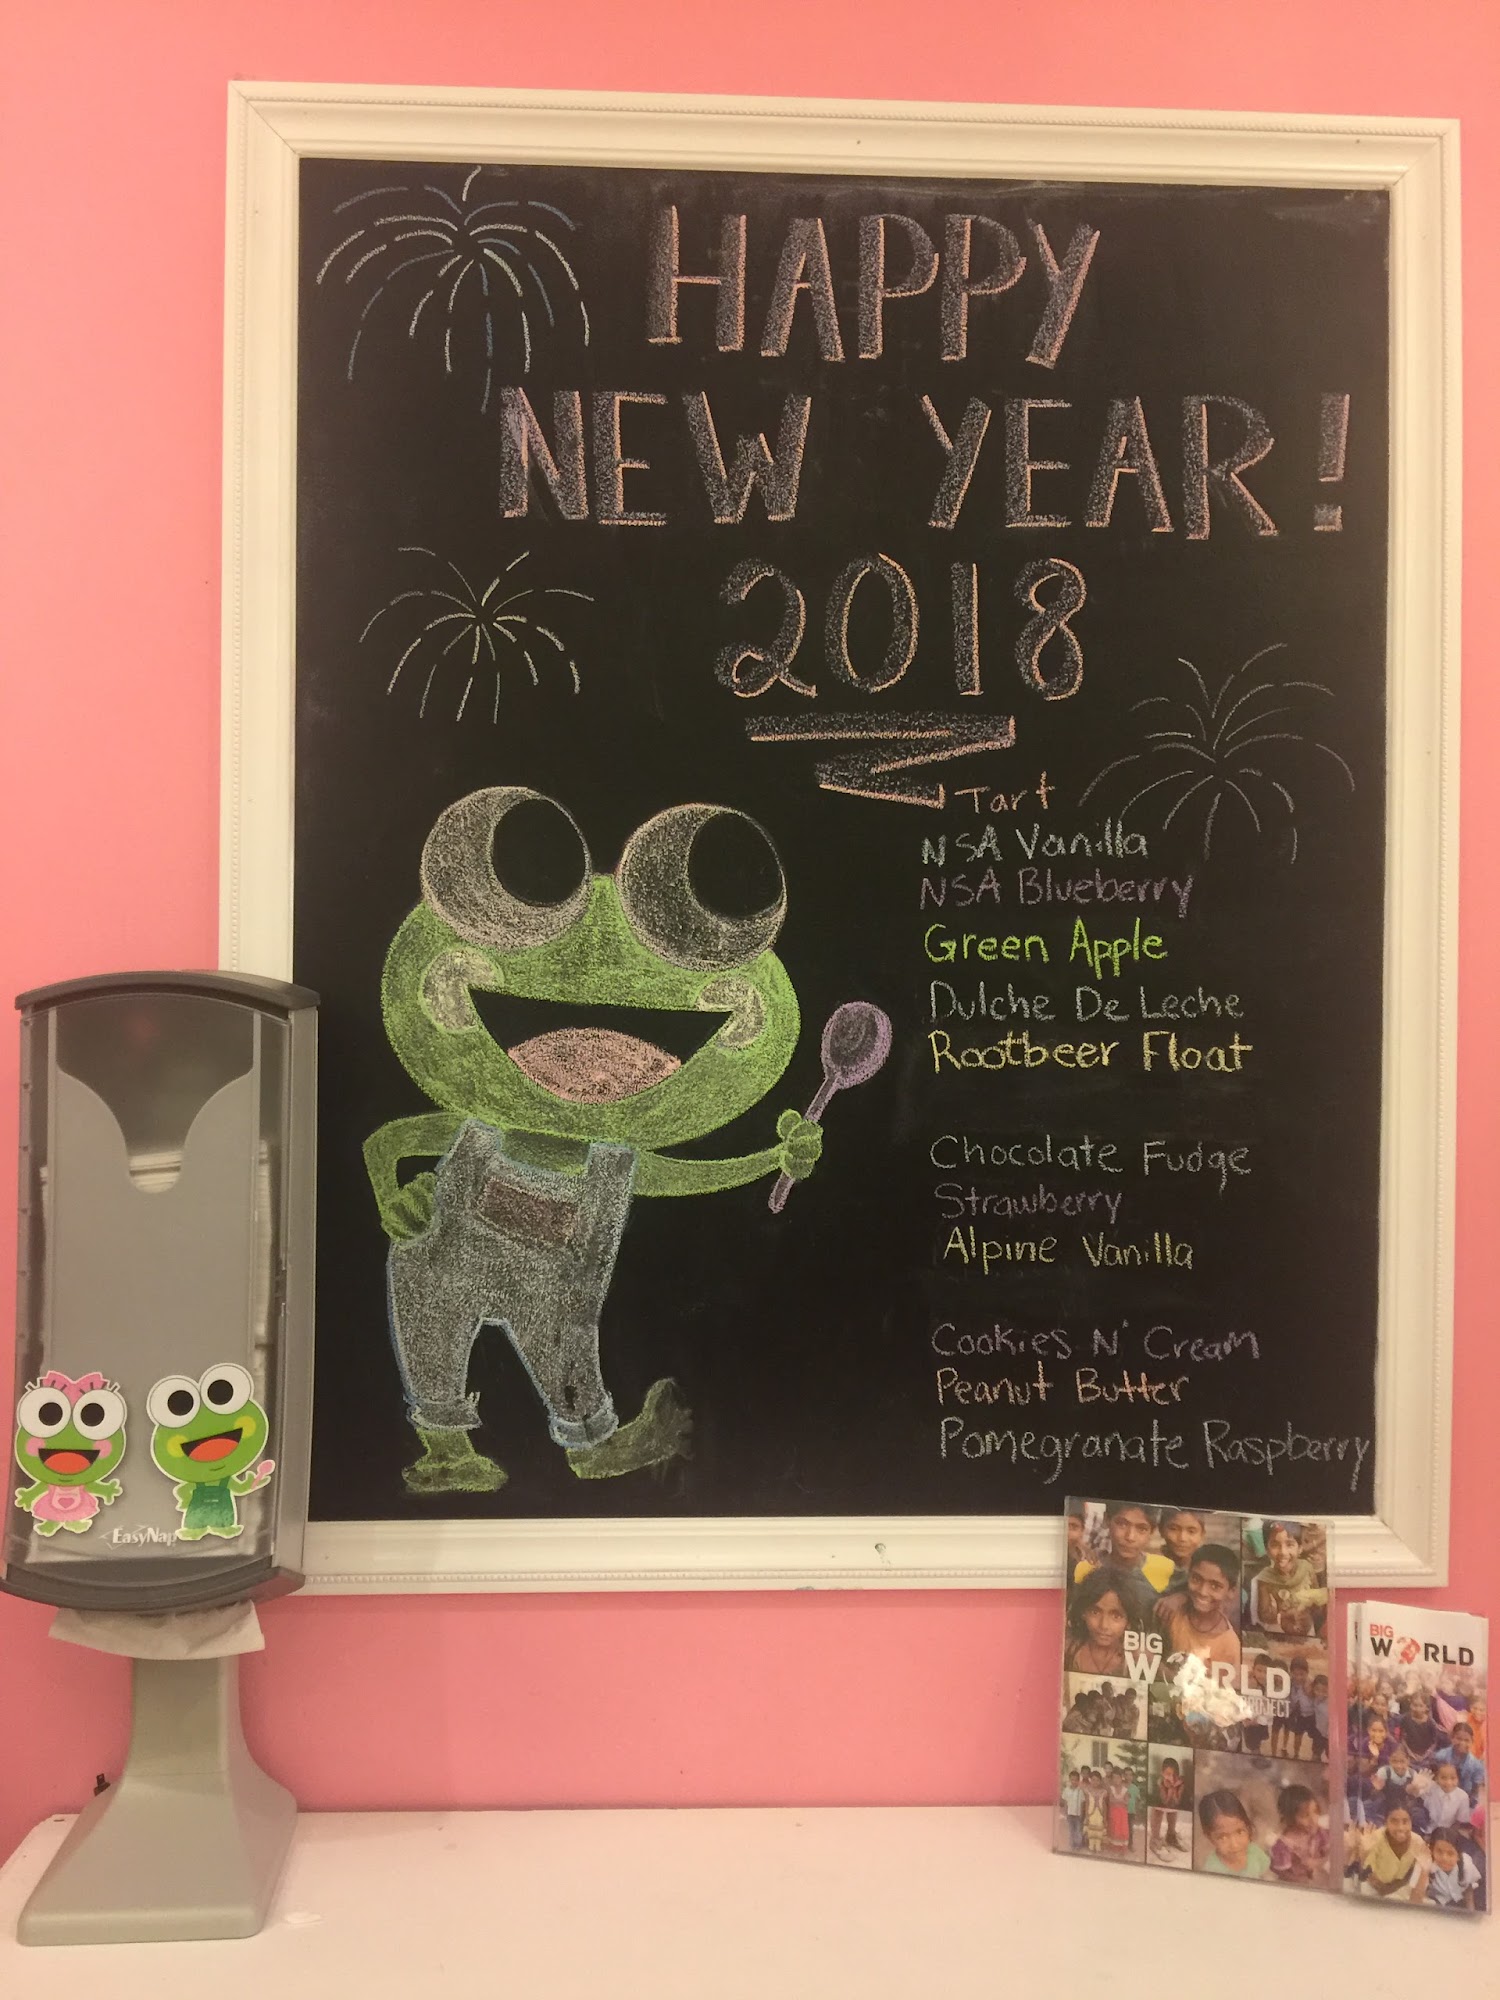 HAPPY
NEW YEAR!
2018
Tart
NSA Vanilla
NSA Blueberry
Green Apple
Dulche De Leche
Rootbeer Float
Chocolate Fudge
Strawberry
Alpine Vanilla
Cookies N' Cream
Peanut Butter
Pomegranate Raspberry
EasyNap
BIG
WORLD
PROJECT
BIG
WORLD